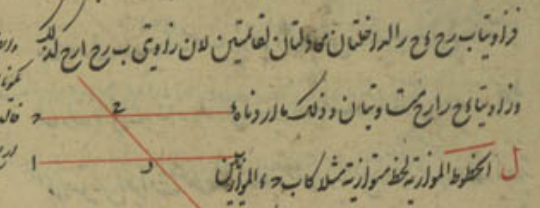 فزاويتا ب ر ح ء ح ر الداخلتان معادلتان لقائمتين لان زاويتي ب ر ح ا ر ح كذلك
وزاويتا ء ح ر ا ر ح متساويتان وذلك ما اردناه
ل الخطوط الموازية لخط متوازية مثلا كاب ح ء الموازيين